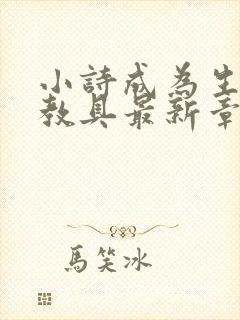 小詩成為生
教具最新章
馬笑冰